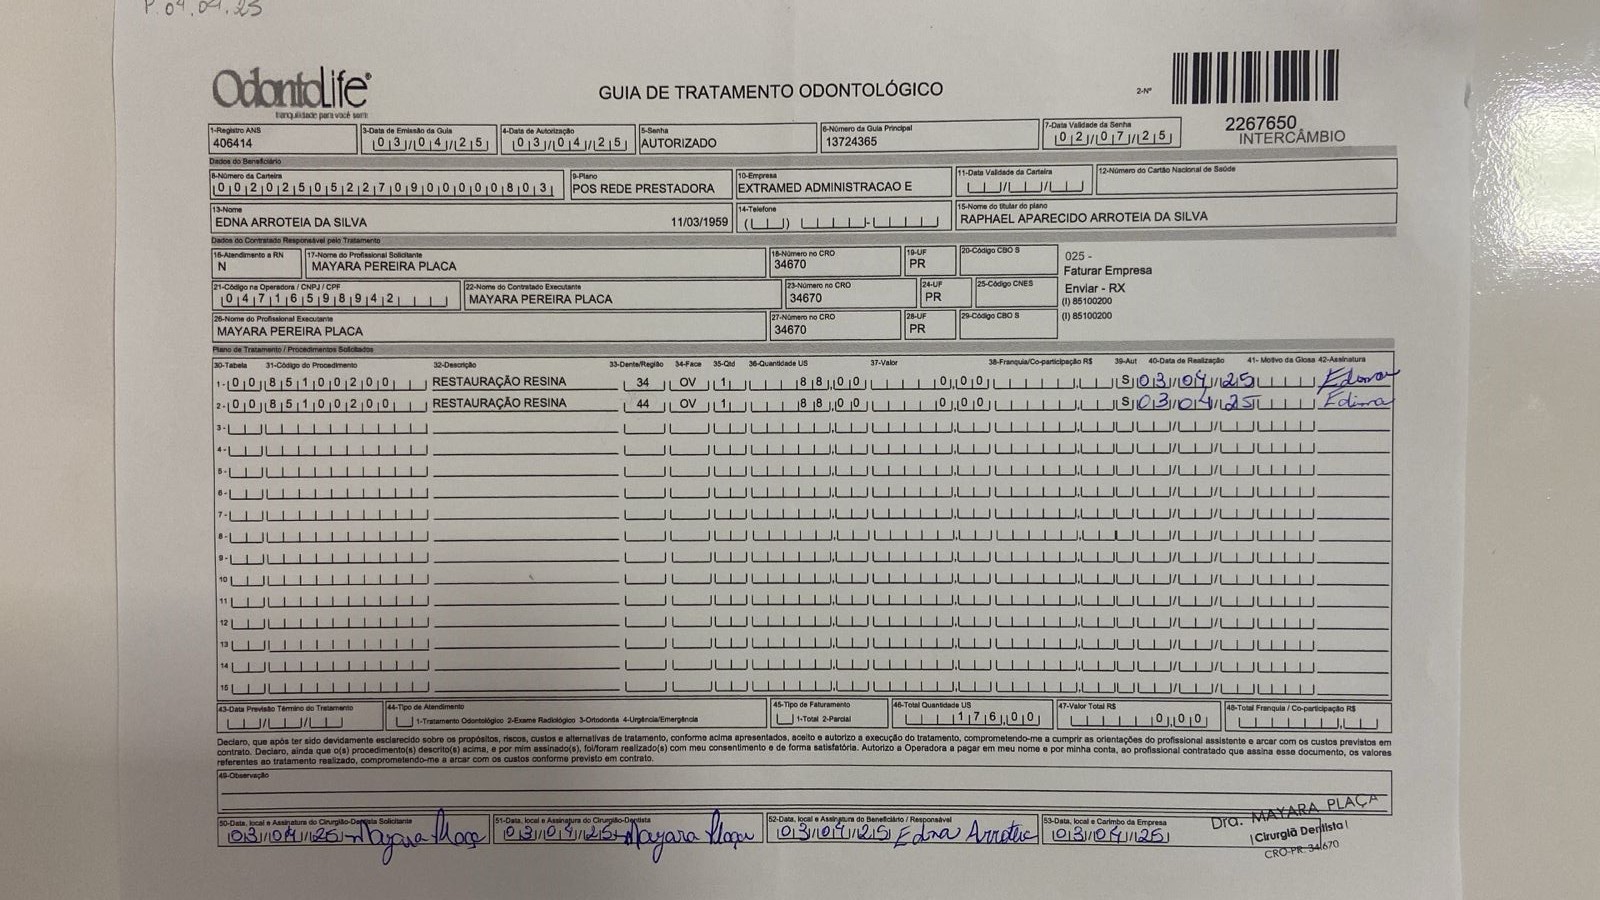 P. 04.04.25
OdontoLife®
tranquilidade para você sorrir
GUIA DE TRATAMENTO ODONTOLÓGICO
2-Nº
2267650
INTERCÂMBIO
1-Registro ANS 3-Data de Emissão da Guia 4-Data de Autorização 5-Senha 6-Número da Guia Principal 7-Data Validade da Senha
406414 03/04/25 03/04/25 AUTORIZADO 13724365 02/07/25
Dados do Beneficiário
8-Número da Carteira 9-Plano 10-Empresa 11-Data Validade da Carteira 12-Número do Cartão Nacional de Saúde
002025052270900000803 POS REDE PRESTADORA EXTRAMED ADMINISTRACAO E
13-Nome 14-Telefone 15-Nome do titular do plano
EDNA ARROTEIA DA SILVA 11/03/1959 RAPHAEL APARECIDO ARROTEIA DA SILVA
Dados do Contratado Responsável pelo Tratamento
16-Atendimento a RN 17-Nome do Profissional Solicitante 18-Número no CRO 19-UF 20-Código CBO S
N MAYARA PEREIRA PLACA 34670 PR
025 -
Faturar Empresa
Enviar - RX
(I) 85100200
(I) 85100200
21-Código na Operadora / CNPJ / CPF 22-Nome do Contratado Executante 23-Número no CRO 24-UF 25-Código CNES
04716598942 MAYARA PEREIRA PLACA 34670 PR
26-Nome do Profissional Executante 27-Número no CRO 28-UF 29-Código CBO S
MAYARA PEREIRA PLACA 34670 PR
Plano de Tratamento / Procedimentos Solicitados
30-Tabela 31-Código do Procedimento 32-Descrição 33-Dente/Região 34-Face 35-Qtd 36-Quantidade US 37-Valor 38-Franquia/Co-participação R$ 39-Aut 40-Data de Realização 41- Motivo da Glosa 42-Assinatura
1- 00 85100200 RESTAURAÇÃO RESINA 34 OV 1 88,00 0,00 S 03/04/25 Edna
2- 00 85100200 RESTAURAÇÃO RESINA 44 OV 1 88,00 0,00 S 03/04/25 Edna
3-
4-
5-
6-
7-
8-
9-
10
11
12
13
14
15
43-Data Previsão Término do Tratamento 44-Tipo de Atendimento 45-Tipo de Faturamento 46-Total Quantidade US 47-Valor Total R$ 48-Total Franquia / Co-participação R$
1-Tratamento Odontológico 2-Exame Radiológico 3-Ortodontia 4-Urgência/Emergência 1-Total 2-Parcial 176,00 0,00
Declaro, que após ter sido devidamente esclarecido sobre os propósitos, riscos, custos e alternativas de tratamento, conforme acima apresentados, aceito e autorizo a execução do tratamento, comprometendo-me a cumprir as orientações do profissional assistente e arcar com os custos previstos em
contrato. Declaro, ainda que o(s) procedimento(s) descrito(s) acima, e por mim assinado(s), foi/foram realizado(s) com meu consentimento e de forma satisfatória. Autorizo a Operadora a pagar em meu nome e por minha conta, ao profissional contratado que assina esse documento, os valores
referentes ao tratamento realizado, comprometendo-me a arcar com os custos conforme previsto em contrato.
49-Observação
50-Data, local e Assinatura do Cirurgião-Dentista Solicitante 51-Data, local e Assinatura do Cirurgião-Dentista 52-Data, local e Assinatura do Beneficiário / Responsável 53-Data, local e Carimbo da Empresa
03/04/25 Mayara Plaça 03/04/25 Mayara Plaça 03/04/25 Edna Arroteia 03/04/25
Dra. MAYARA PLAÇA
Cirurgiã Dentista
CRO-PR: 34.670